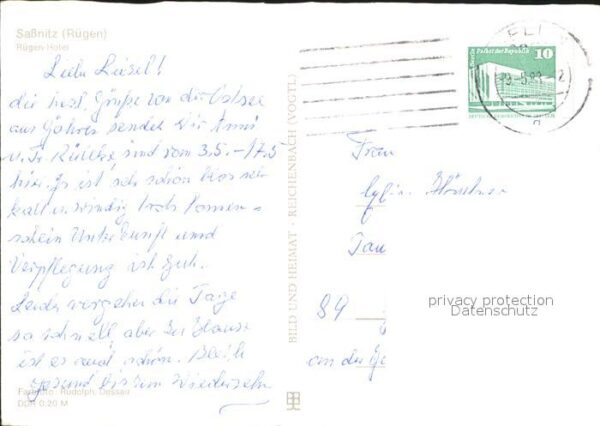 Saßnitz (Rügen)
Rügen-Hotel
Liebe Liesel!
die herzl. Grüße von der Ostsee
aus Göhren sendet Dir Anni
u. Fr. sind vom 3.5. – 17.5.
hier. Es ist sehr schön blos sehr
kalt u. windig trotz Sonnen-
schein Unterkunft und
Verpflegung ist gut.
Leider vergehen die Tage
so schnell aber zu Hause
ist es auch schön. Bleib
gesund bis zum Wiedersehn
Farbfoto: Rudolph, Dessau
DDR 0,20 M
BILD UND HEIMAT - REICHENBACH (VOGTL)
Berlin Palast der Republik
10
Frau
Tau
89
an der
privacy protection
Datenschutz